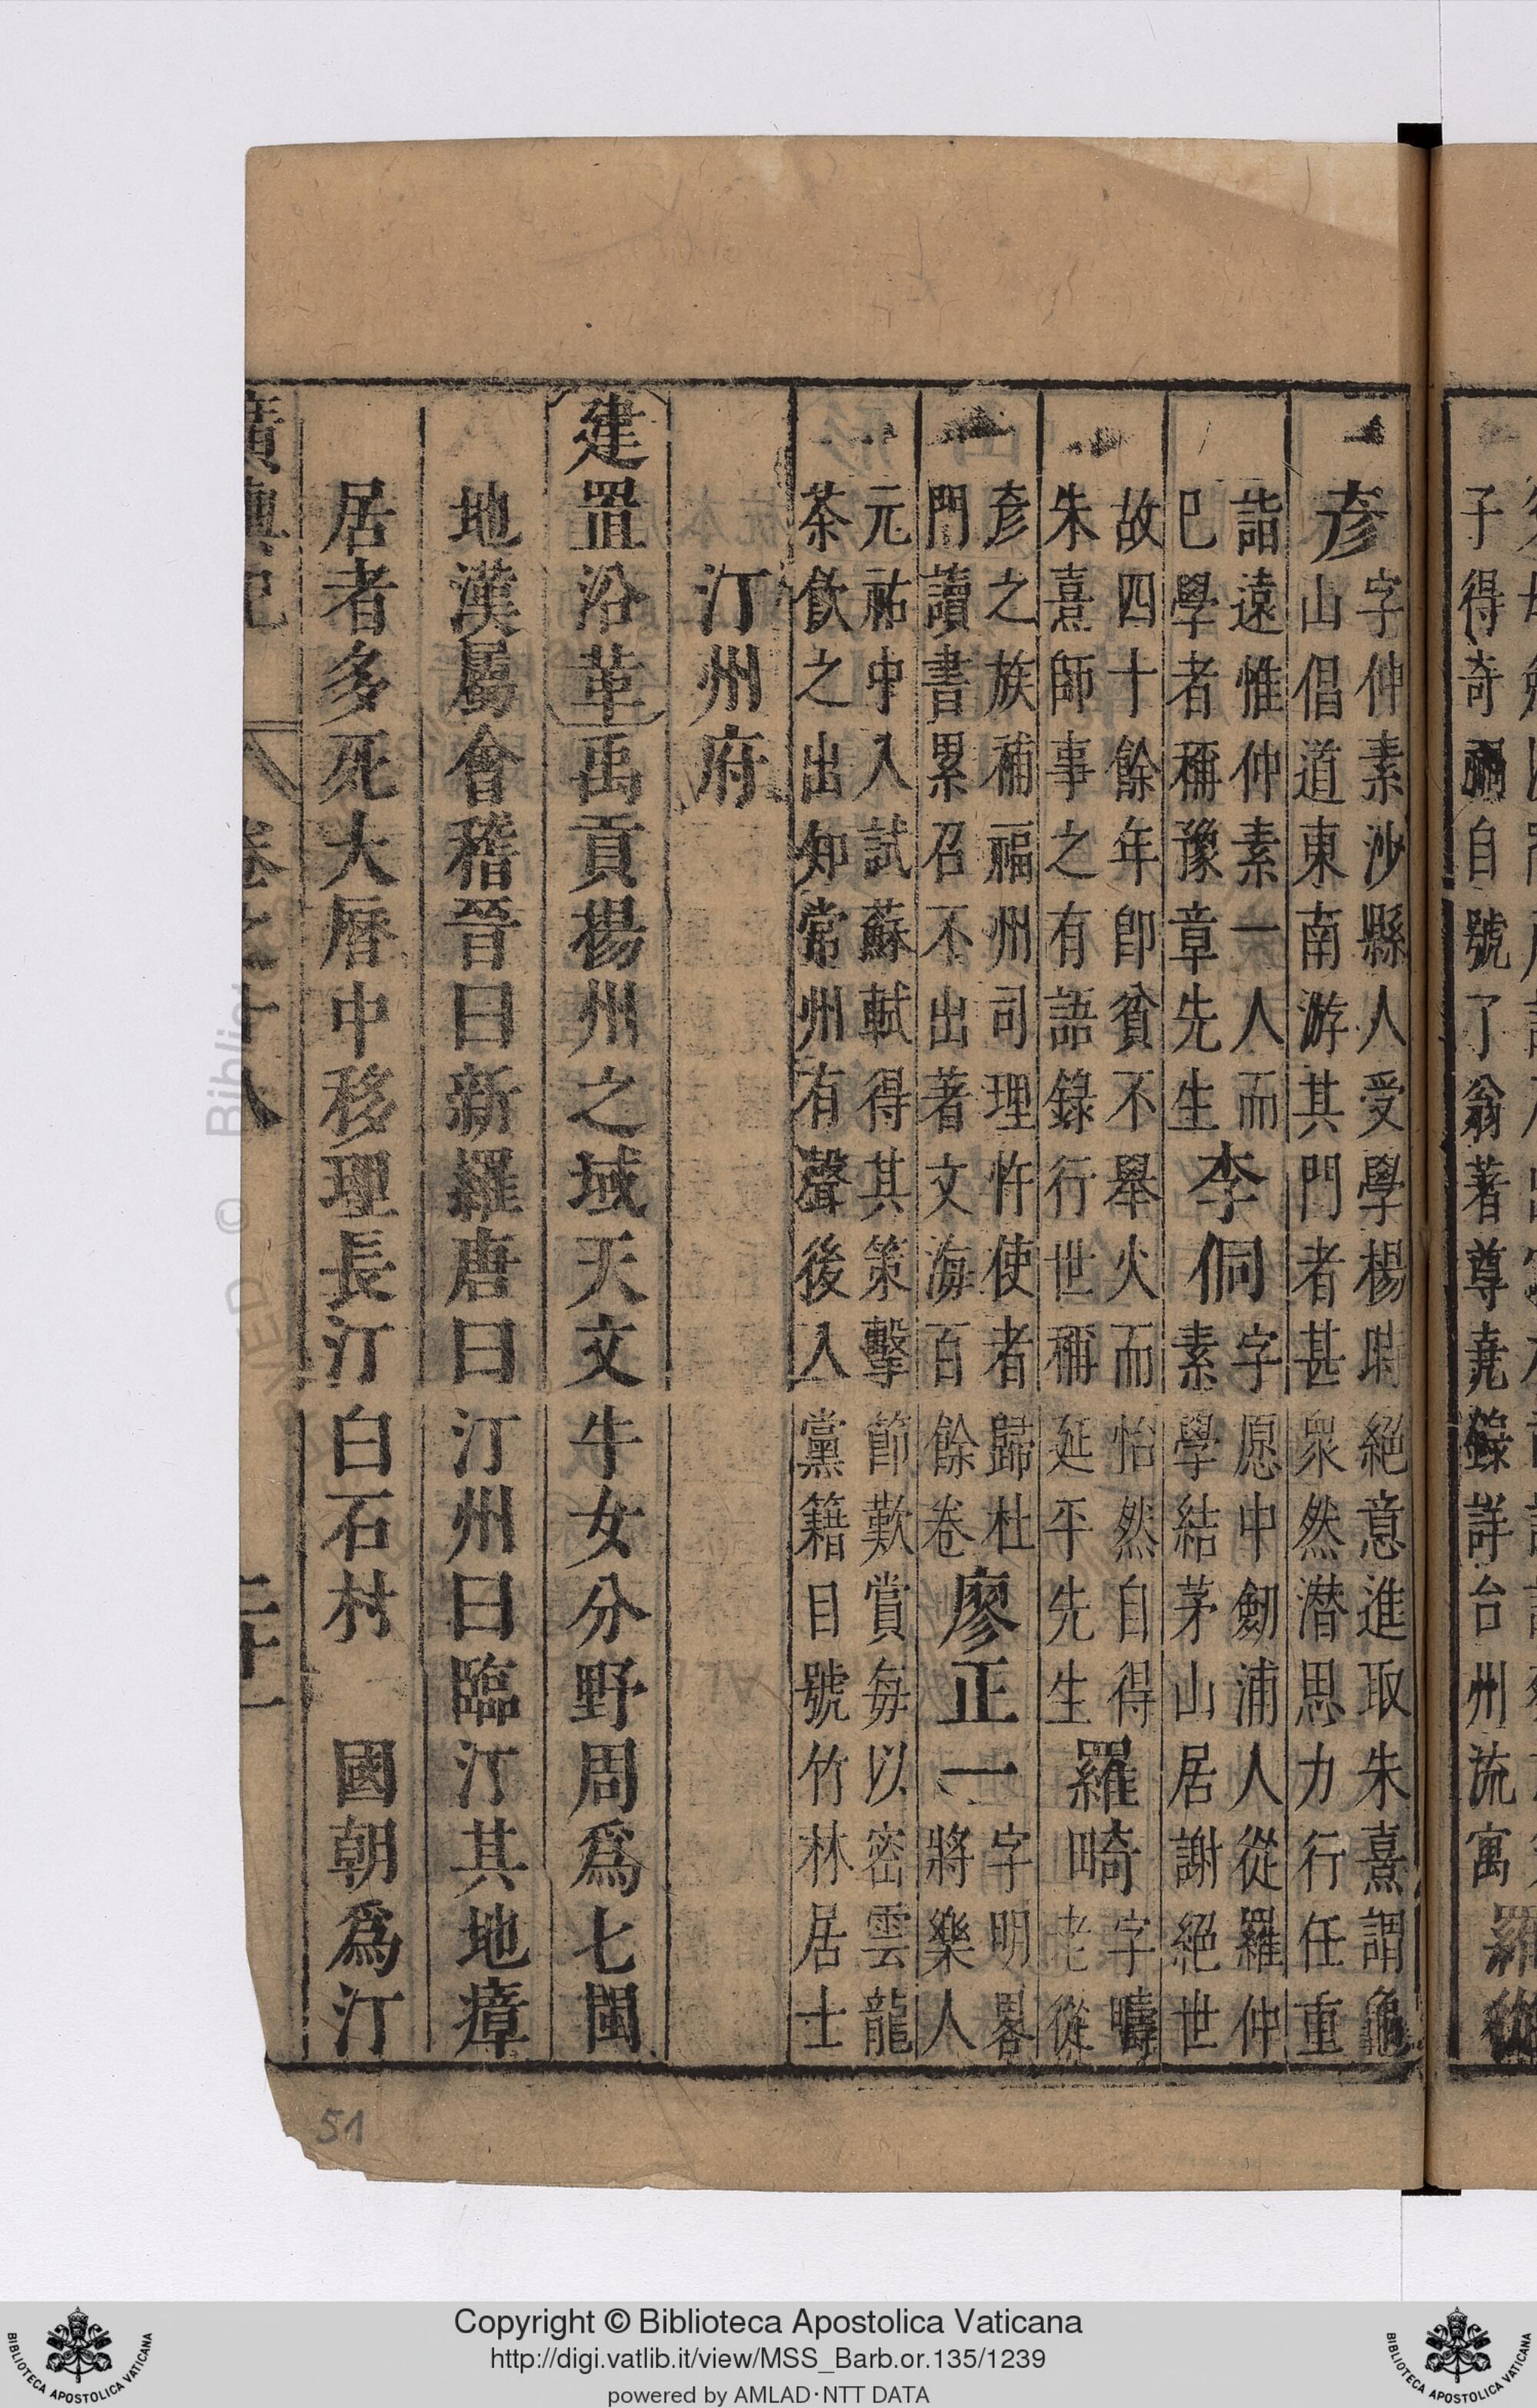 子得奇禰自號了翁著尊堯錄詳台州流寓羅從
彥字仲素沙縣人受學楊時絕意進取朱熹謂龜
山倡道東南游其門者甚衆然潜思力行任重
詣遠惟仲素一人而
巳學者稱豫章先生李侗字愿中劒浦人從羅仲
素學結茅山居謝絕世
故四十餘年卽貧不舉火而怡然自得
朱熹師事之有語錄行世稱延平先生羅畸字疇
老從
彥之族補福州司理忤使者歸杜
門讀書累召不出著文海百餘卷廖正一字明畧
將樂人
元祐中入試蘇軾得其策擊節歎賞每以密雲龍
茶飲之出知常州有聲後入黨籍目號竹林居士
汀州府
建置沿革禹貢楊州之域天文牛女分野周爲七閩
地漢屬會稽晉曰新羅唐曰汀州曰臨汀其地瘴
居者多死大曆中移理長汀白石村 國朝爲汀
廣輿記 卷之十八 二十一
51
Copyright © Biblioteca Apostolica Vaticana
http://digi.vatlib.it/view/MSS_Barb.or.135/1239
powered by AMLAD·NTT DATA
BIBLIOTECA APOSTOLICA VATICANA
BIBLIOTECA APOSTOLICA VATICANA